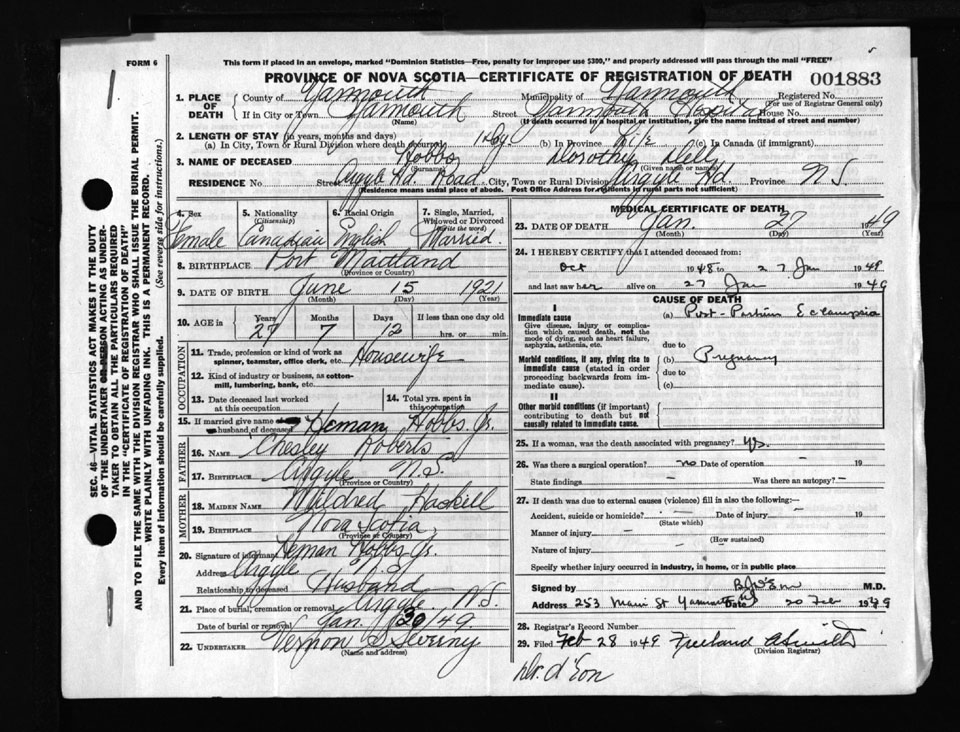 FORM 6
This form if placed in an envelope, marked "Dominion Statistics—Free, penalty for improper use $300," and properly addressed will pass through the mail "FREE"
PROVINCE OF NOVA SCOTIA—CERTIFICATE OF REGISTRATION OF DEATH 001883
1. PLACE OF DEATH County of Yarmouth Municipality of Yarmouth Registered No.
(For use of Registrar General only)
If in City or Town Yarmouth Street Yarmouth Hospital House No.
(Name) (If death occurred in a hospital or institution, give the name instead of street and number)
2. LENGTH OF STAY (in years, months and days)
(a) In City, Town or Rural Division where death occurred 1 day (b) In Province Life (c) In Canada (if immigrant)
3. NAME OF DECEASED Hobbs Dorothy Dell
(Surname) (Given name or names)
RESIDENCE No. Street Argyle Hd. Road City, Town or Rural Division Argyle Hd. Province N.S.
(Residence means usual place of abode. Post Office Address for residents in rural parts not sufficient)
4. Sex 5. Nationality (Citizenship) 6. Racial Origin 7. Single, Married, Widowed or Divorced (Write the word)
Female Canadian English Married.
8. BIRTHPLACE Port Maitland
(Province or Country)
9. DATE OF BIRTH June 15 1921
(Month) (Day) (Year)
10. AGE in Years Months Days If less than one day old
27 7 12 hrs. or min.
OCCUPATION
11. Trade, profession or kind of work as spinner, teamster, office clerk, etc. Housewife
12. Kind of industry or business, as cotton-mill, lumbering, bank, etc.
13. Date deceased last worked at this occupation
14. Total yrs. spent in this occupation
15. If married give name of husband of deceased Heman Hobbs Jr.
FATHER
16. NAME Chesley Roberts
17. BIRTHPLACE Argyle N.S.
(Province or Country)
MOTHER
18. MAIDEN NAME Mildred Haskell
19. BIRTHPLACE Nova Scotia
(Province or Country)
20. Signature of informant Heman Hobbs Jr.
Address Argyle
Relationship to deceased Husband
21. Place of burial, cremation or removal Argyle, N.S.
Date of burial or removal Jan. 30/49
22. UNDERTAKER Vernon
(Name and address)
MEDICAL CERTIFICATE OF DEATH
23. DATE OF DEATH Jan. 27 1949
(Month) (Day) (Year)
24. I HEREBY CERTIFY that I attended deceased from:
Oct 1948 to 27 Jan 1949
and last saw her alive on 27 Jan 1949
CAUSE OF DEATH
I
Immediate cause (a) Post-Partum Eclampsia
Give disease, injury or complication which caused death, not the mode of dying, such as heart failure, asphyxia, asthenia, etc.
due to
Morbid conditions, if any, giving rise to immediate cause (stated in order proceeding backwards from immediate cause).
(b) Pregnancy
due to
(c)
II
Other morbid conditions (if important) contributing to death but not causally related to immediate cause.
25. If a woman, was the death associated with pregnancy? yes.
26. Was there a surgical operation? no Date of operation — 19
State findings — Was there an autopsy? —
27. If death was due to external causes (violence) fill in also the following:—
Accident, suicide or homicide? — Date of injury — 19
(State which)
Manner of injury —
(How sustained)
Nature of injury —
Specify whether injury occurred in industry, in home, or in public place
Signed by M.D.
Address 253 Main St Yarmouth Date 20 Feb 1949
28. Registrar's Record Number
29. Filed Feb 28 1949
(Division Registrar)
Dr. d'Eon
SEC. 46—VITAL STATISTICS ACT MAKES IT THE DUTY OF THE UNDERTAKER OR PERSON ACTING AS UNDERTAKER TO OBTAIN ALL THE PARTICULARS REQUIRED IN THE "CERTIFICATE OF REGISTRATION OF DEATH" AND TO FILE THE SAME WITH THE DIVISION REGISTRAR WHO SHALL ISSUE THE BURIAL PERMIT.
WRITE PLAINLY WITH UNFADING INK. THIS IS A PERMANENT RECORD.
Every item of information should be carefully supplied. (See reverse side for instructions.)